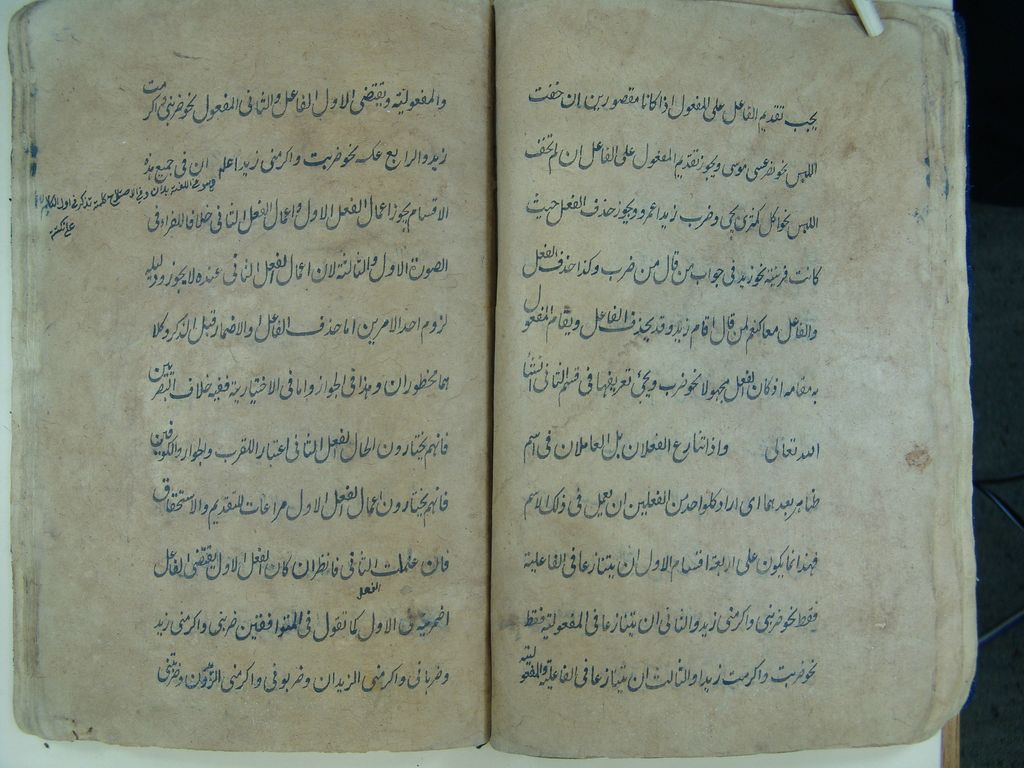 يجب تقديم الفاعل على المفعول اذا كانا مقصورين ان خفت
اللبس نحو ضرب عيسى موسى ويجوز تقديم المفعول على الفاعل ان لم تخف
اللبس نحو اكل كمثرى يحيى وضرب زيدا عمرو ويجوز حذف الفعل حيث
كانت قرينة نحو زيد فى جواب من قال من ضرب وكذا حذف الفعل
والفاعل معا كنعم لمن قال اقام زيد وقد يحذف الفاعل ويقام المفعول
به مقامه اذ كان الفعل مجهولا نحو ضرب ويجئ تعريفها فى قسم الثانى انشا
الله تعالى واذا تنازع الفعلان بل العاملان فى اسم
ظاهر بعدهما اى اراد كلواحد من الفعلين ان يعمل فى ذلك الاسم
فهذا انما يكون على اربعة اقسام الاول ان يتنازعا فى الفاعلية
فقط نحو ضربنى واكرمنى زيد والثانى ان يتنازعا فى المفعولية فقط
نحو ضربت واكرمت زيدا والثالث ان يتنازعا فى الفاعلية والمفعولية
والمفعولية ويقتضى الاول الفاعل والثانى المفعول نحو ضربنى واكرمت
زيد والرابع عكسه نحو ضربت واكرمنى زيد اعلم ان فى جميع هذه
الاقسام يجوز اعمال الفعل الاول واعمال الفعل الثانى خلافا للفراء فى
الصورة الاول والثالثة لان اعمال الفعل الثانى عنده لا يجوز ودليله
لزوم احد الامرين اما حذف الفاعل والاضمار قبل الذكر وكلا
هما محظوران وهذا فى الجواز واما فى الاختيارية ففيه خلاف البصريين
فانهم يختارون اعمال الفعل الثانى اعتبارا للقرب والجوار والكوفيين
فانهم يختارون اعمال الفعل الاول مراعات للتقديم والاستحقاق
فان عملت الثانى فانظر ان كان الفعل الاول يقتضى الفاعل
الفعل
اضمرته فى الاول كما يقول فى المتوافقين ضربنى واكرمنى زيد
وضربانى واكرمنى الزيدان وضربونى واكرمنى الزيدون وضربتنى